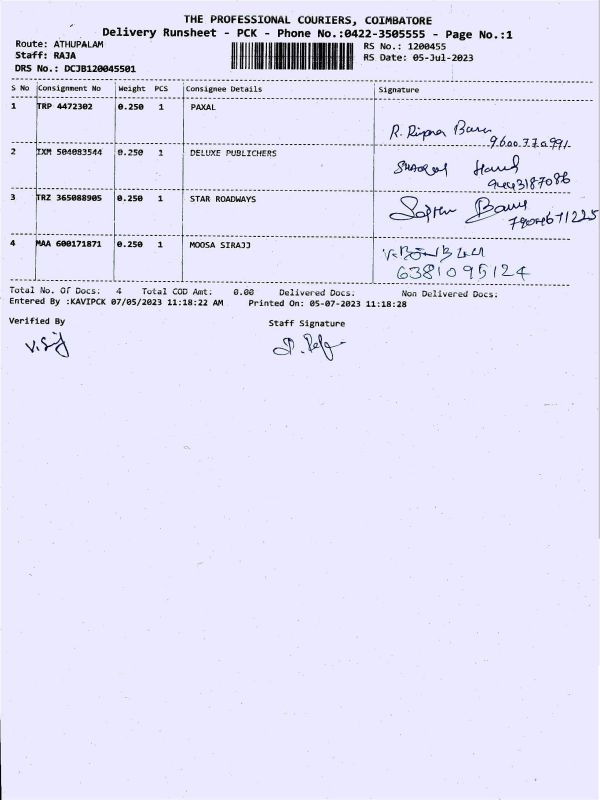 THE PROFESSIONAL COURIERS, COIMBATORE
Delivery Runsheet - PCK - Phone No.:0422-3505555 - Page No.:1
Route: ATHUPALAM
RS No.: 1200455
Staff: RAJA
RS Date: 05-Jul-2023
DRS No.: DCJB120045501
S No Consignment No Weight PCS Consignee Details Signature
1 TRP 4472302 0.250 1 PAXAL
9600770991
2 IXM 504083544 0.250 1 DELUXE PUBLICHERS
9443187086
3 TRZ 365088905 0.250 1 STAR ROADWAYS
4 MAA 600171871 0.250 1 MOOSA SIRAJJ
6381095124
Total No. Of Docs: 4 Total COD Amt: 0.00 Delivered Docs: Non Delivered Docs:
Entered By :KAVIPCK 07/05/2023 11:18:22 AM Printed On: 05-07-2023 11:18:28
Verified By Staff Signature